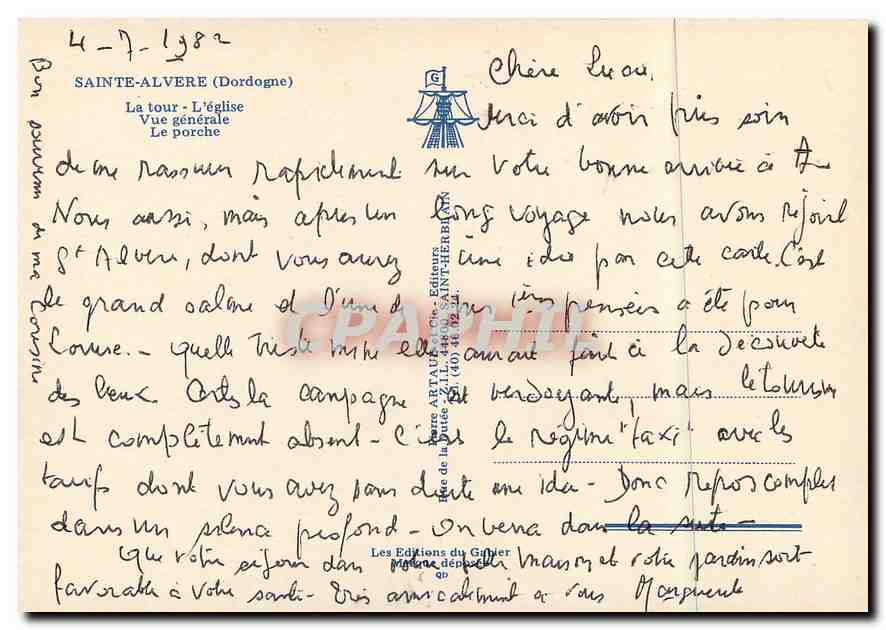 4-7-1982
SAINTE-ALVERE (Dordogne)
La tour - L'église
Vue générale
Le porche
G
Chère
Merci d'avoir pris soin
de me rassurer rapidement sur votre bonne arrivée à
Nous aussi, mais après un long voyage nous avons rejoint
St Alvère, dont vous aurez une idée par cette carte. C'est
le grand calme et l'une de 1ères pensées a été pour
Louise. - Quelle triste mine elle aurait fait à la découverte
des lieux. Certes la campagne est verdoyante, mais le tourisme
est complètement absent - C'est le régime "taxi" avec les
tarifs dont vous avez sans doute une idée - Donc repos complet
dans un silence profond - On verra dans la suite -
Que votre séjour dans votre maison et votre jardin soit
favorable à votre santé - Très amicalement à vous Marguerite
Bon souvenir de ma cousine
Pierre ARTAUD et Cie - Editeurs
Rue de la Dutée - Z.I.L. 44800 SAINT-HERBLAIN
Tél. (40) 46.02.24.
Les Editions du Gabier
Marque déposée
CPAPHIL